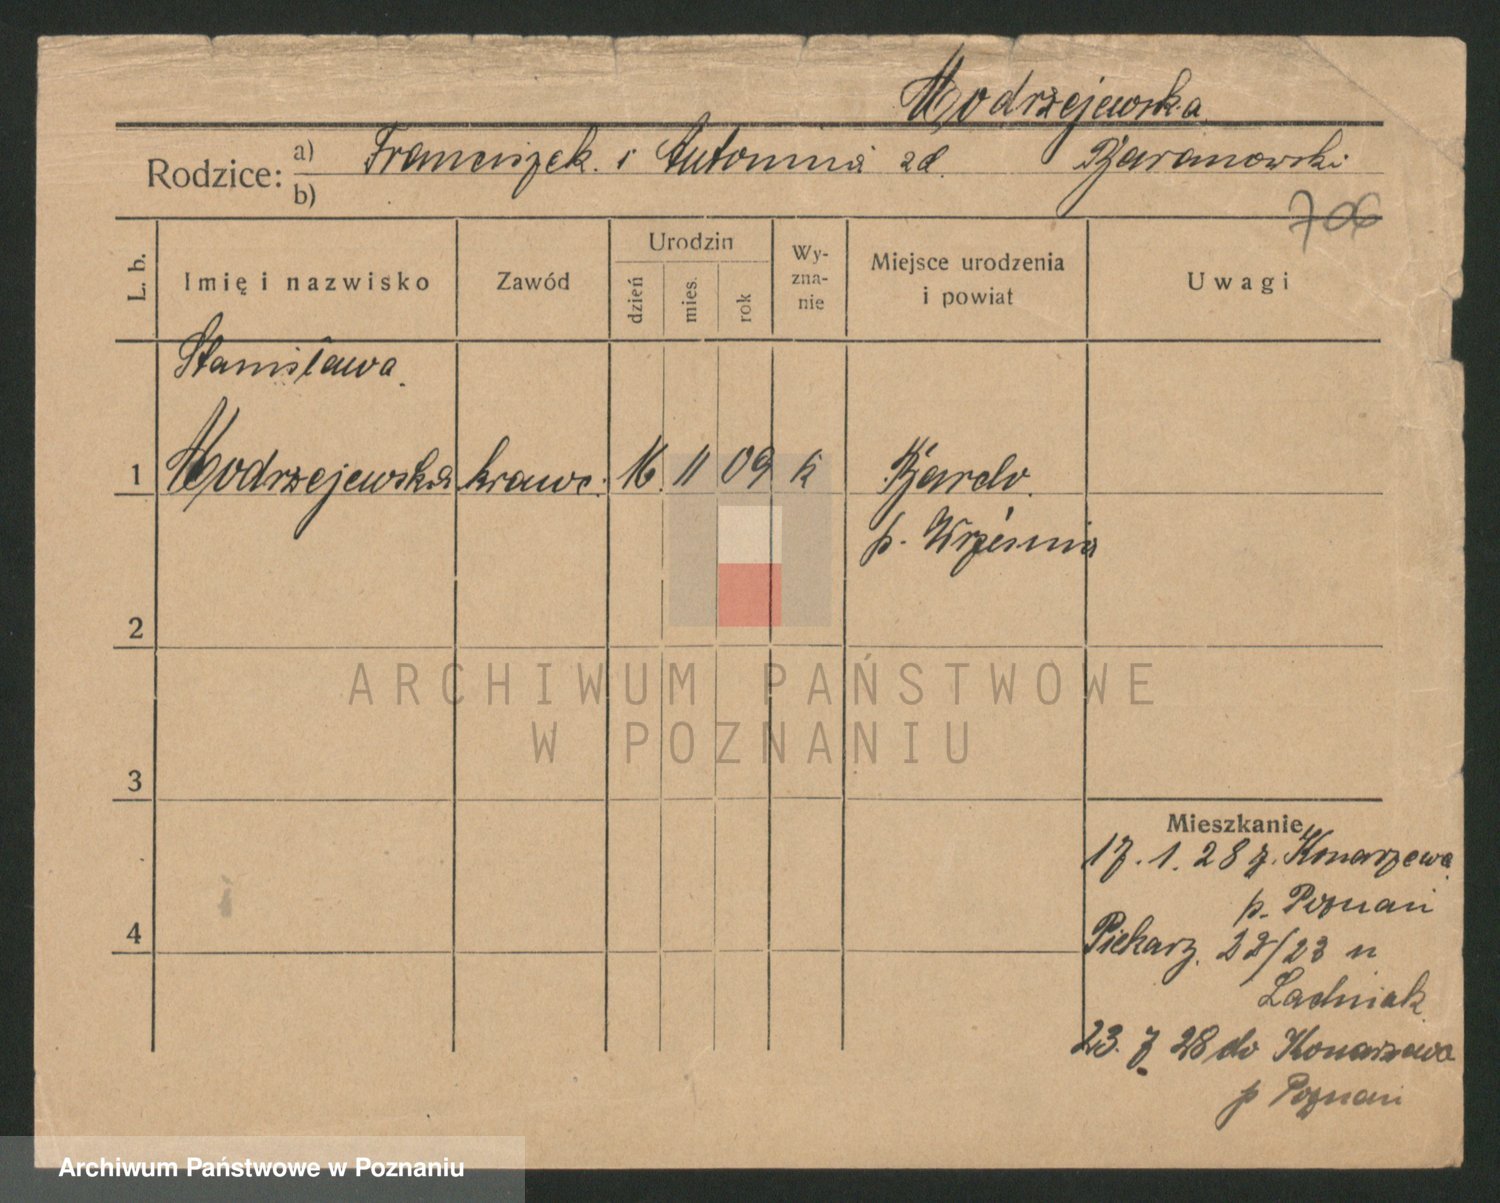 Modrzejewska
Rodzice: a) Franciszek i Antonina zd. Baranowski
b)
706
L. b.
Imię i nazwisko
Zawód
Urodzin
dzień
mies.
rok
Wy-
zna-
nie
Miejsce urodzenia
i powiat
Uwagi
Stanisława
1 Modrzejewska krawc. 16 11 09 k Bardo
p. Września
2
3
4
Mieszkanie
17.1.28 z. Konarzewa
p. Poznań
Piekarz. 22/23 u
Ladniak
23.7.28 do Konarzewa
p Poznań
ARCHIWUM PAŃSTWOWE
W POZNANIU
Archiwum Państwowe w Poznaniu